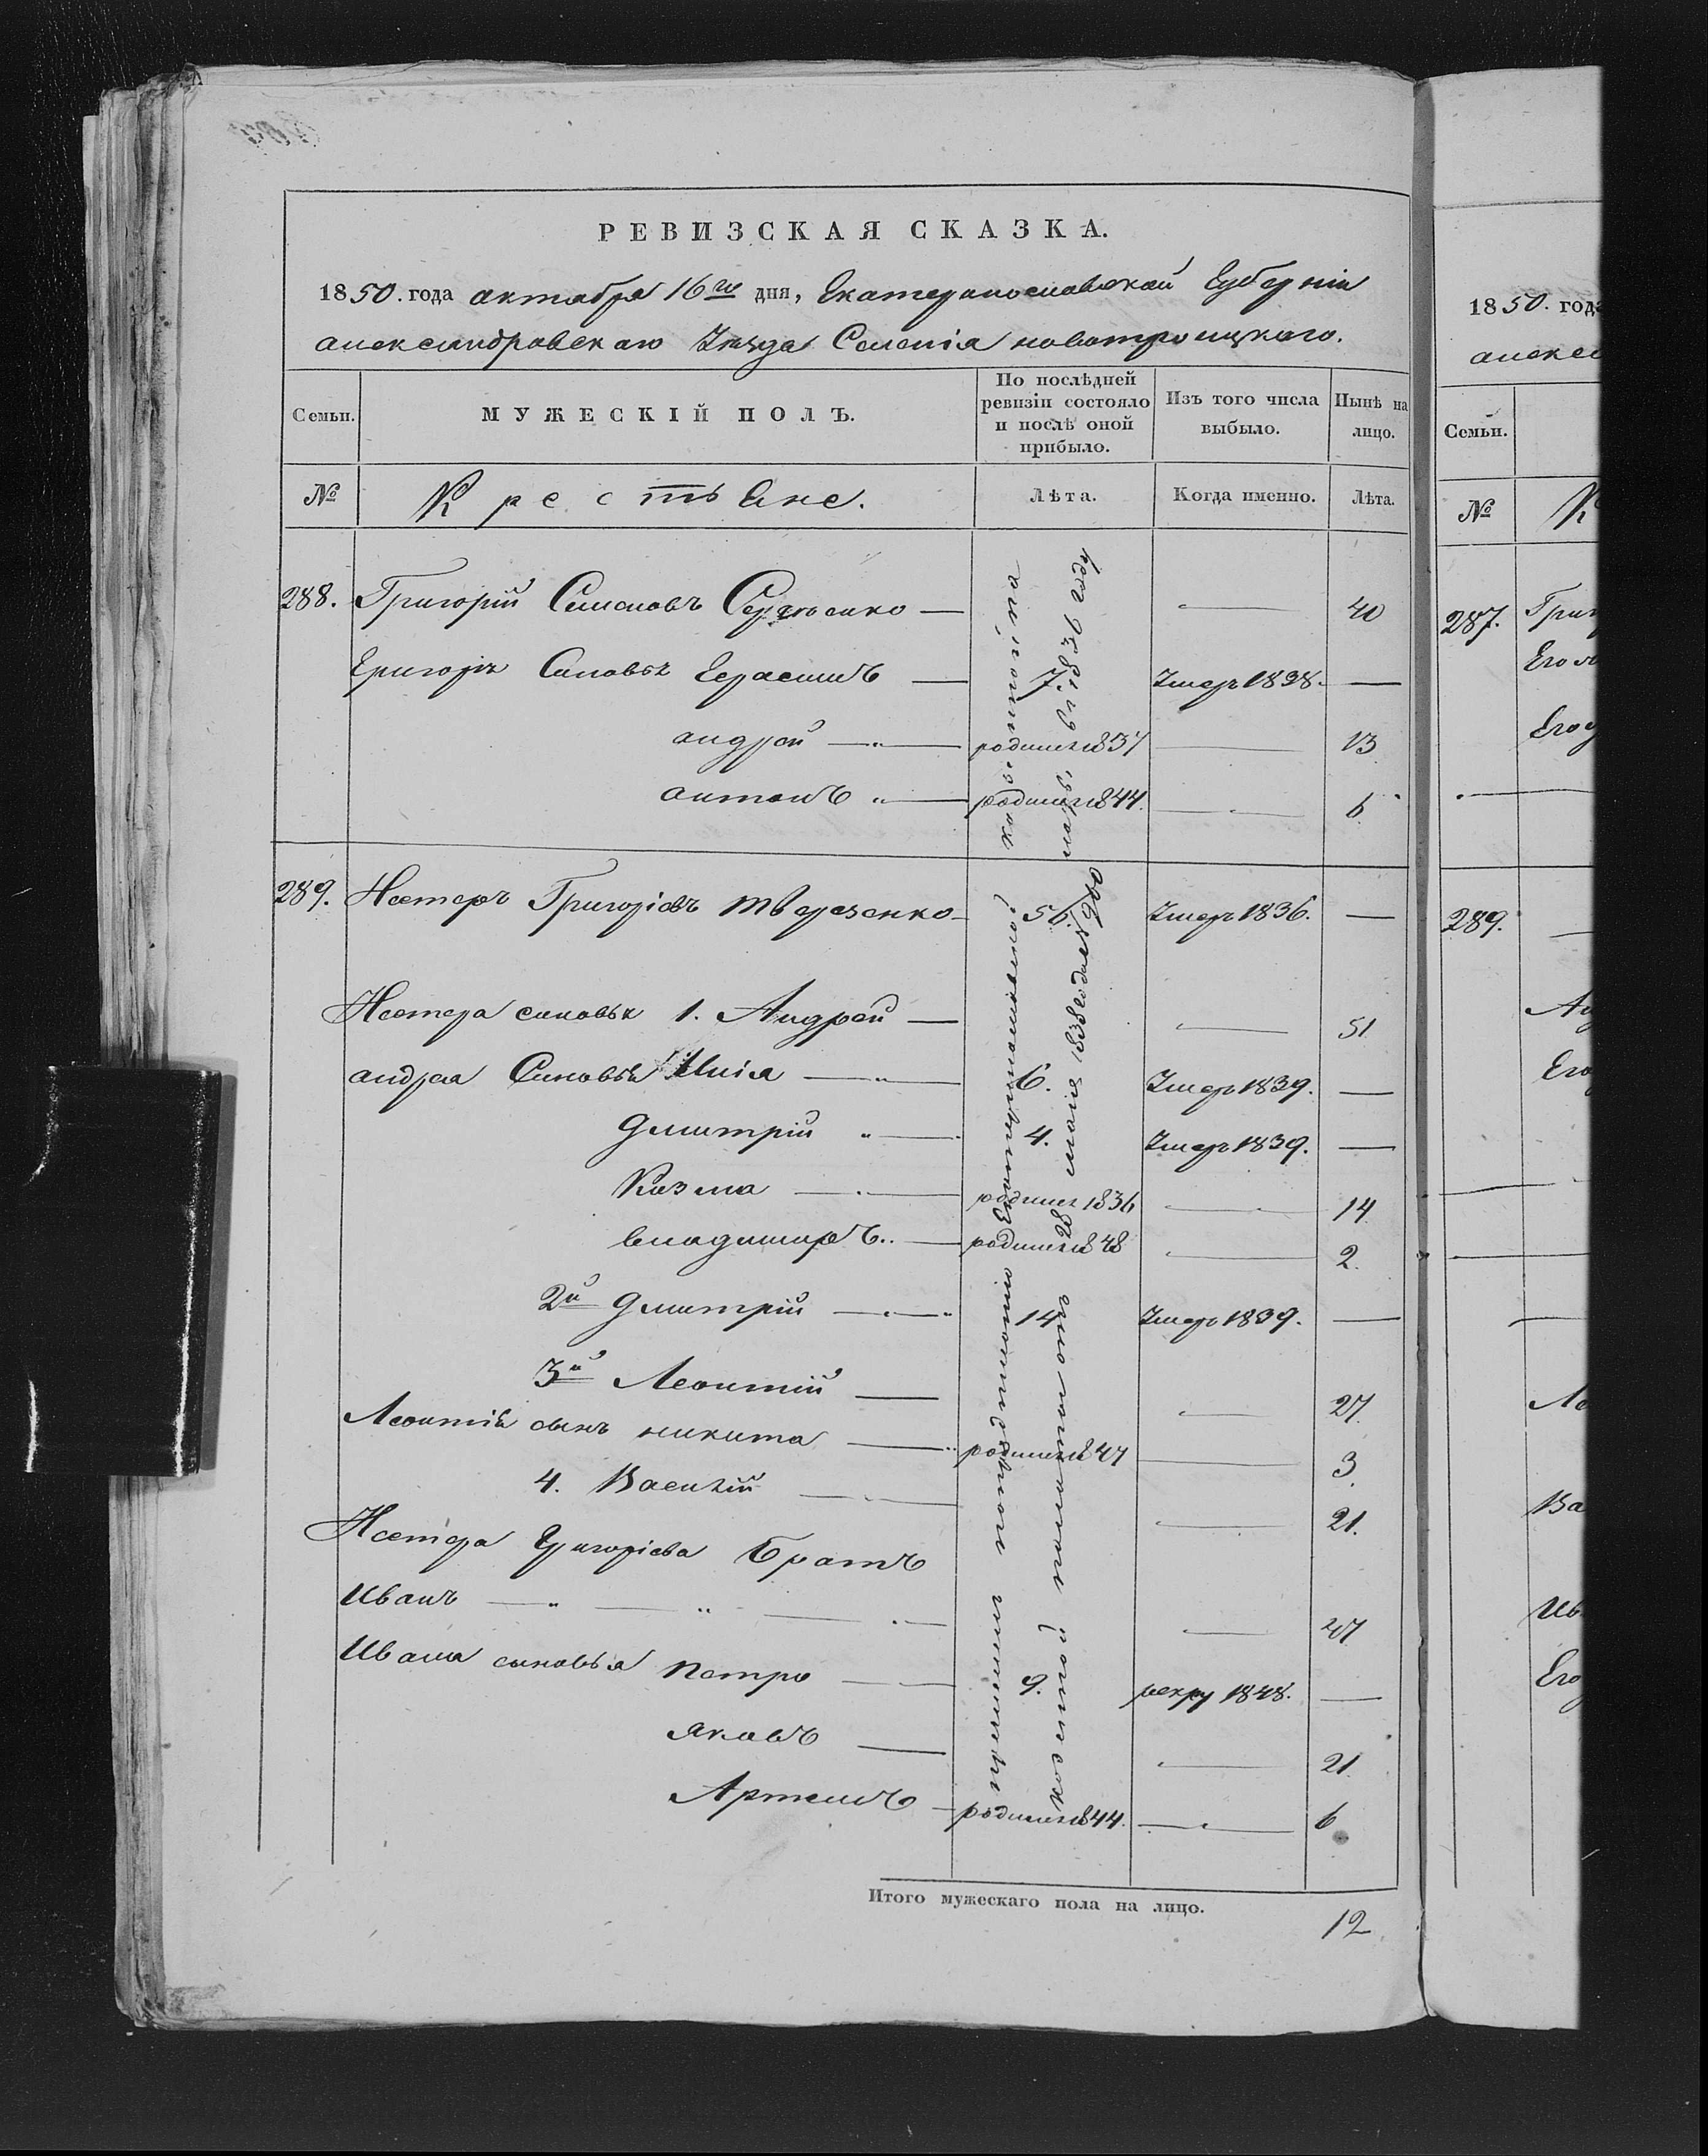 РЕВИЗСКАЯ СКАЗКА.
1850. года октября 16го дня, Екатеринославской Губерніи
александровскаго Уезда Селенія новотроицкаго.
Семьи.
МУЖЕСКІЙ ПОЛЪ.
По послѣдней ревизіи состояло и послѣ оной прибыло.
Изъ того числа выбыло.
Нынѣ на лицо.
№
Крестьяне.
Лѣта.
Когда именно.
Лѣта.
288. Григорій Семеновъ — 40
Григорія Синовья Герасимъ — 7. Умеръ 1838. —
андрей — родился 1837 — 13
антонъ — родился 1844. — 6
289. Нестеръ Григоріевъ тверезенко — 56. Умеръ 1836. —
Нестера синовья 1. Андрей — 51
андрея Синовья Илія — 6. Умеръ 1839. —
Дмитрій — 4. Умеръ 1839. —
Козма — родился 1836 — 14
владимиръ — родился 1848 — 2.
2й Дмитрій — 14 Умеръ 1839. —
3й Леонтій — 27.
Леонтія сынъ никита — родился 1847 — 3.
4. Василій — 21.
Нестера Григоріева Братъ
Иванъ — 47
Ивана сыновья Петро — 9. рекру 1848. —
яковъ — 21
Артемъ — родился 1844. — 6
казенной па
латы въ 1836 году
причислены по предписанію Екатеринославской
казенной палаты отъ 28 маія 1838 года №
Итого мужескаго пола на лицо.
12
1850. года
алекса
Семьи.
№
К
287. Григ
Его
Его
289.
Ан
Его
Ле
Ва
Ив
Его